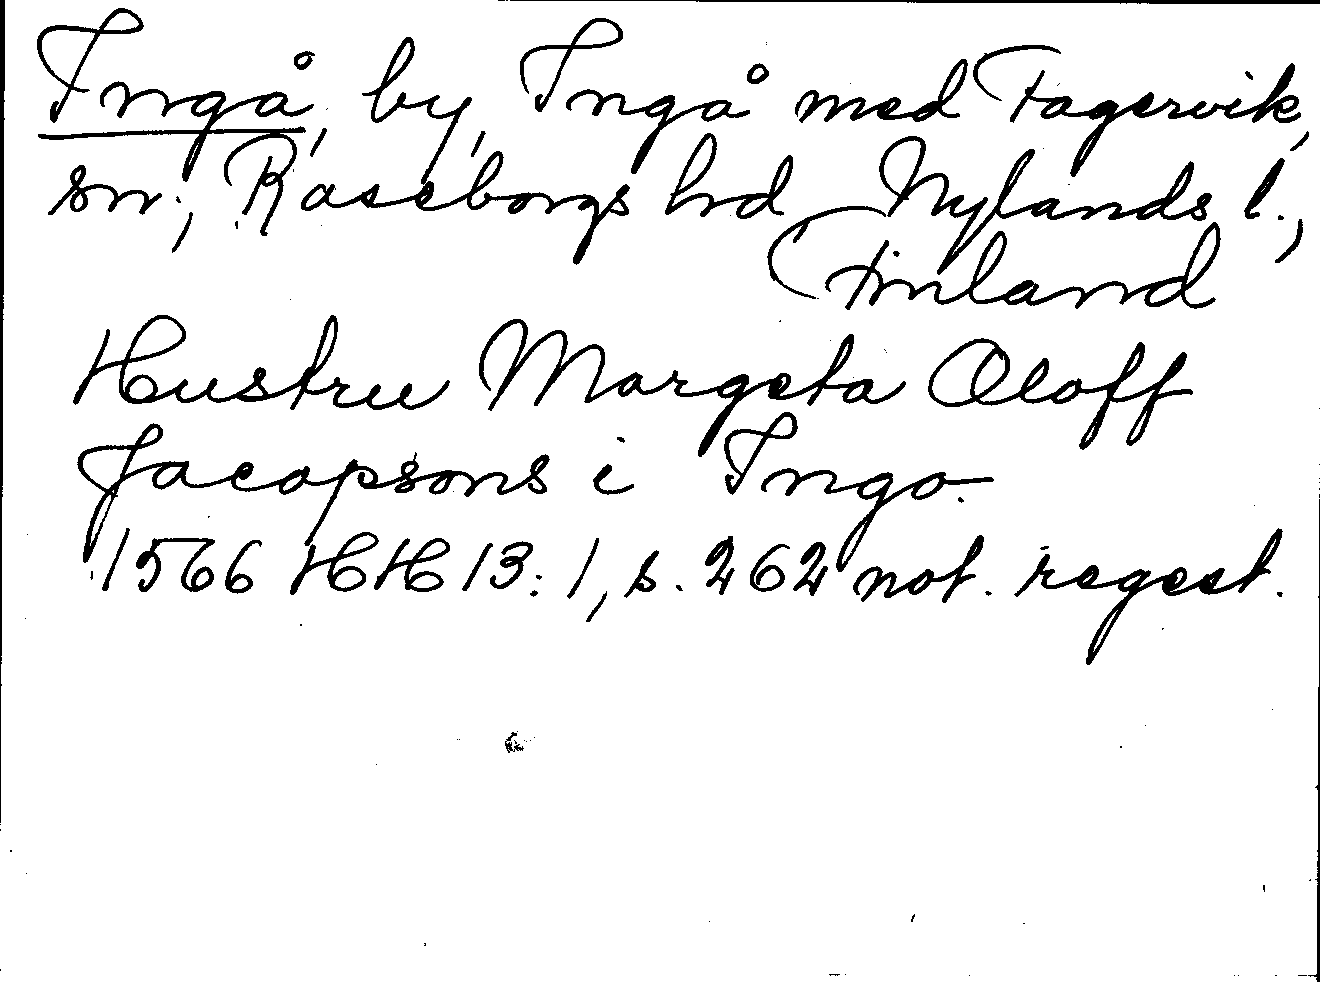 Ingå, by, Ingå med Fagervik,
sn., Raseborgs hrd, Nylands l.,
Finland
Hustru Margeta Oloff
Jacopsons i Ingo.
1566 HH 13:1, s. 262 not. regest.